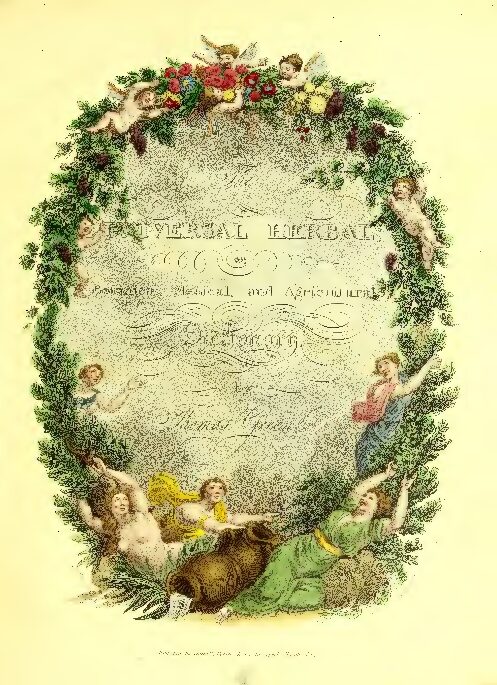 The
UNIVERSAL HERBAL;
OR
Botanical, Medical, and Agricultural
Dictionary,
by
Thomas Green